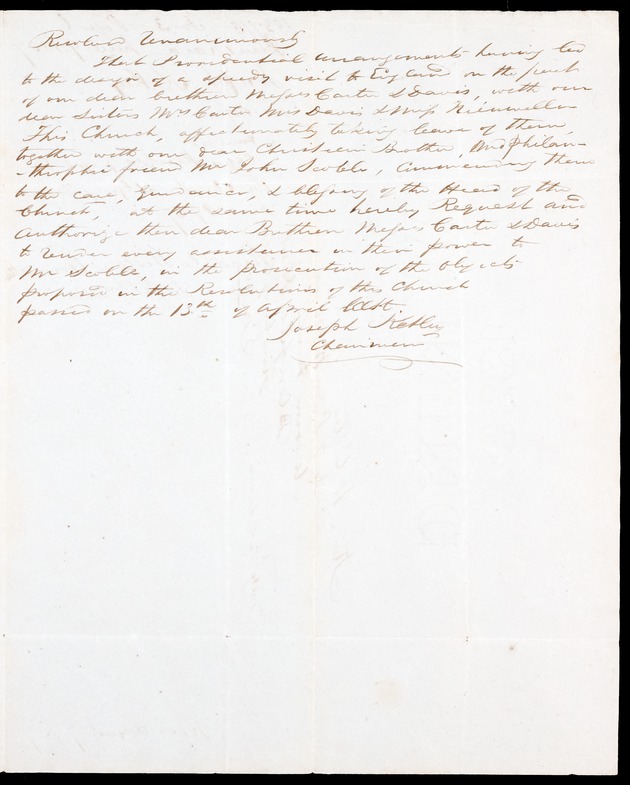 Resolved Unanimously
That Providential arrangements having led
to the design of a speedy visit to England on the part
of our dear brethren Messrs Carter & Davis, with our
dear Sisters Mrs Carter Mrs Davis & Miss
This Church, affectionately taking leave of them,
together with our dear Christian Brother, and philan-
-thropic friend Mr John Scoble, commending them
to the care, guidance, & blessing of the Head of the
Church, at the same time hereby Request and
authorize their dear Brethren Messrs Carter & Davis
to render every assistance in their power to
Mr Scoble, in the prosecution of the objects
proposed in the Resolutions of this Church
passed on the 13th of April Ult.
Joseph Ketley
Chairman